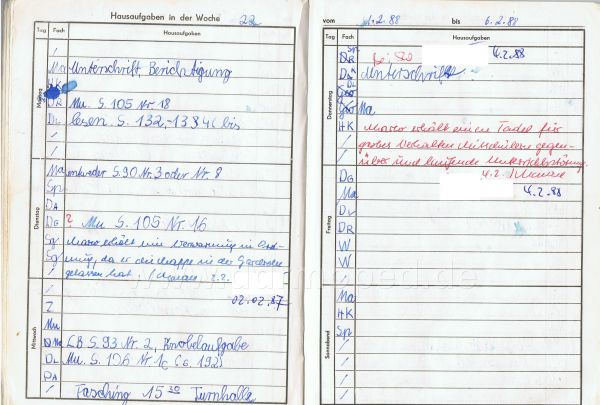 Hausaufgaben in der Woche 22
Tag Fach Hausaufgaben
Montag
/
Ma Unterschrift, Berichtigung
HK
DR Mu. S. 105 Nr. 18
DL lesen S. 132,-133 bis
/
/
Dienstag
Ma entweder S. 90 Nr. 3 oder Nr. 8
Sp
DA
DG ? Mu S. 105 Nr. 16
Sp Marco erhält eine Verwarnung in Ord-
Sp nung, da er die Mappe in der Garderobe
/ gelassen hat.
www.ddrmoped.de
02.02.87
Mittwoch
/
Z
Mu
Ma LB S. 93 Nr. 2, Knobelaufgabe
DL Mu. S. 106 Nr. 1c (S. 192)
DA
/ Fasching 15 30 Turnhalle
vom 1.2.88 bis 6.2.88
Hausaufgaben
Donnerstag
Sp
DR 4.2.88
Unterschrift
Ma
HK Marco erhält einen Tadel für
/ grobes Verhalten Mitschülern gegen-
/ über und laufende Unterrichtsstörung
/ 4.2.
Freitag
DG
Ma 4.2.88
DL
DR
W
W
/
Sonnabend
Ma
HK
Sp
/
/
/